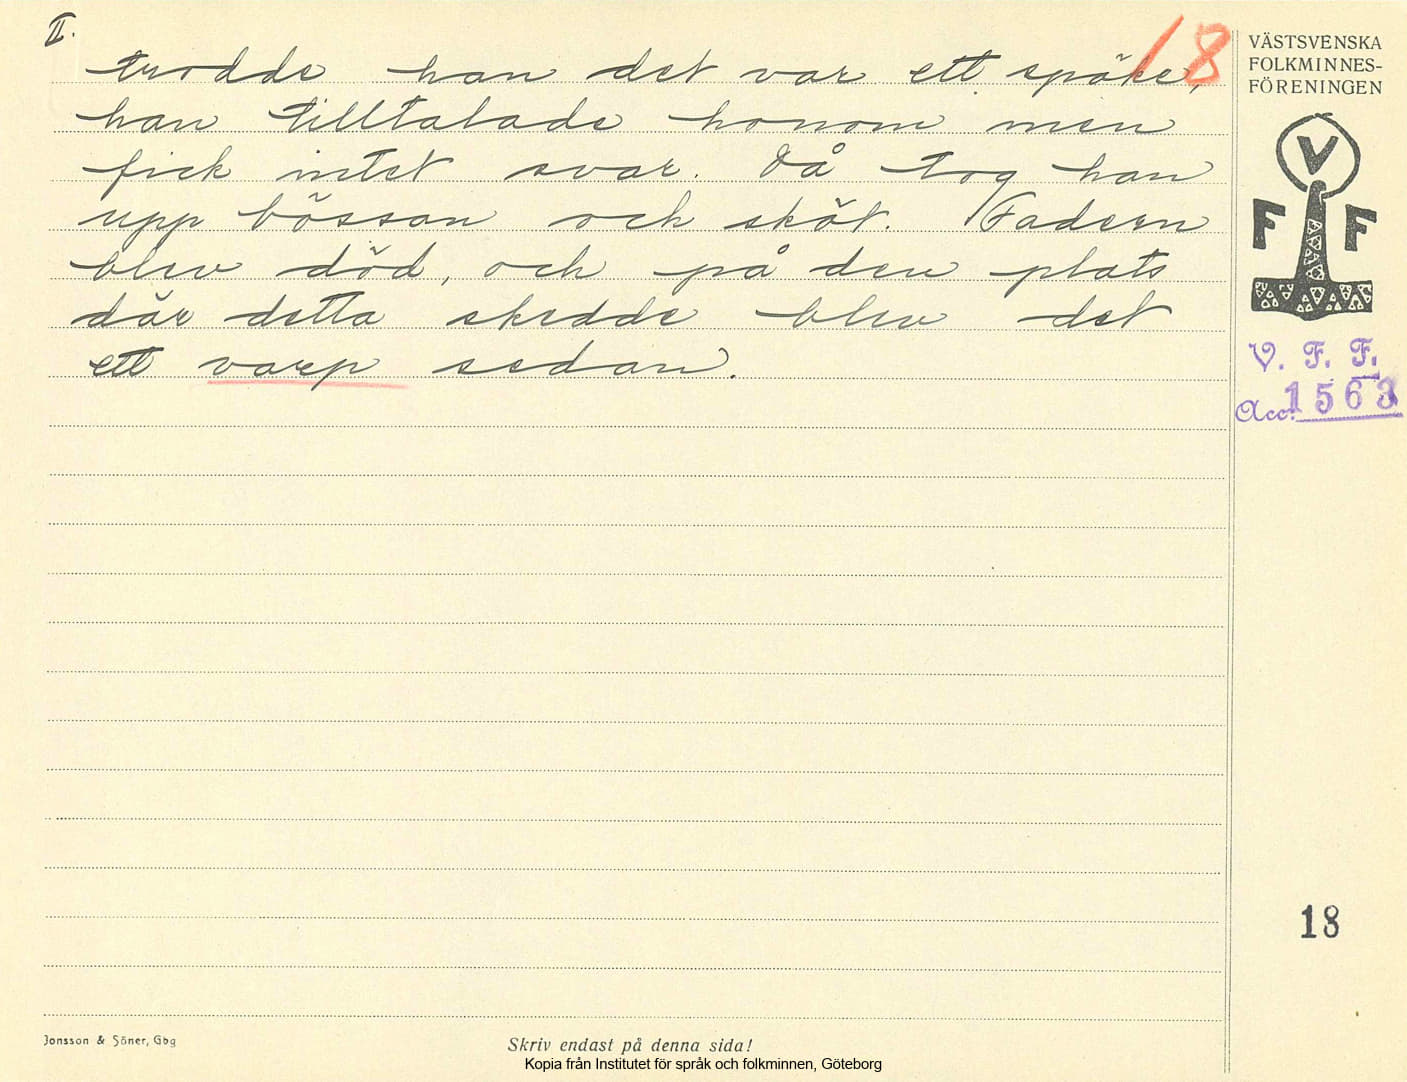 II.
18
trodde han det var ett spöke,
han tilltalade honom men
fick intet svar. Då tog han
upp bössan och sköt. Fadern
blev död, och på den plats
där detta skedde blev det
ett varp sedan.
VÄSTSVENSKA
FOLKMINNES-
FÖRENINGEN
V
F F
V. F. F.
Acc. 1563
18
Jonsson & Söner, Gbg
Skriv endast på denna sida!
Kopia från Institutet för språk och folkminnen, Göteborg